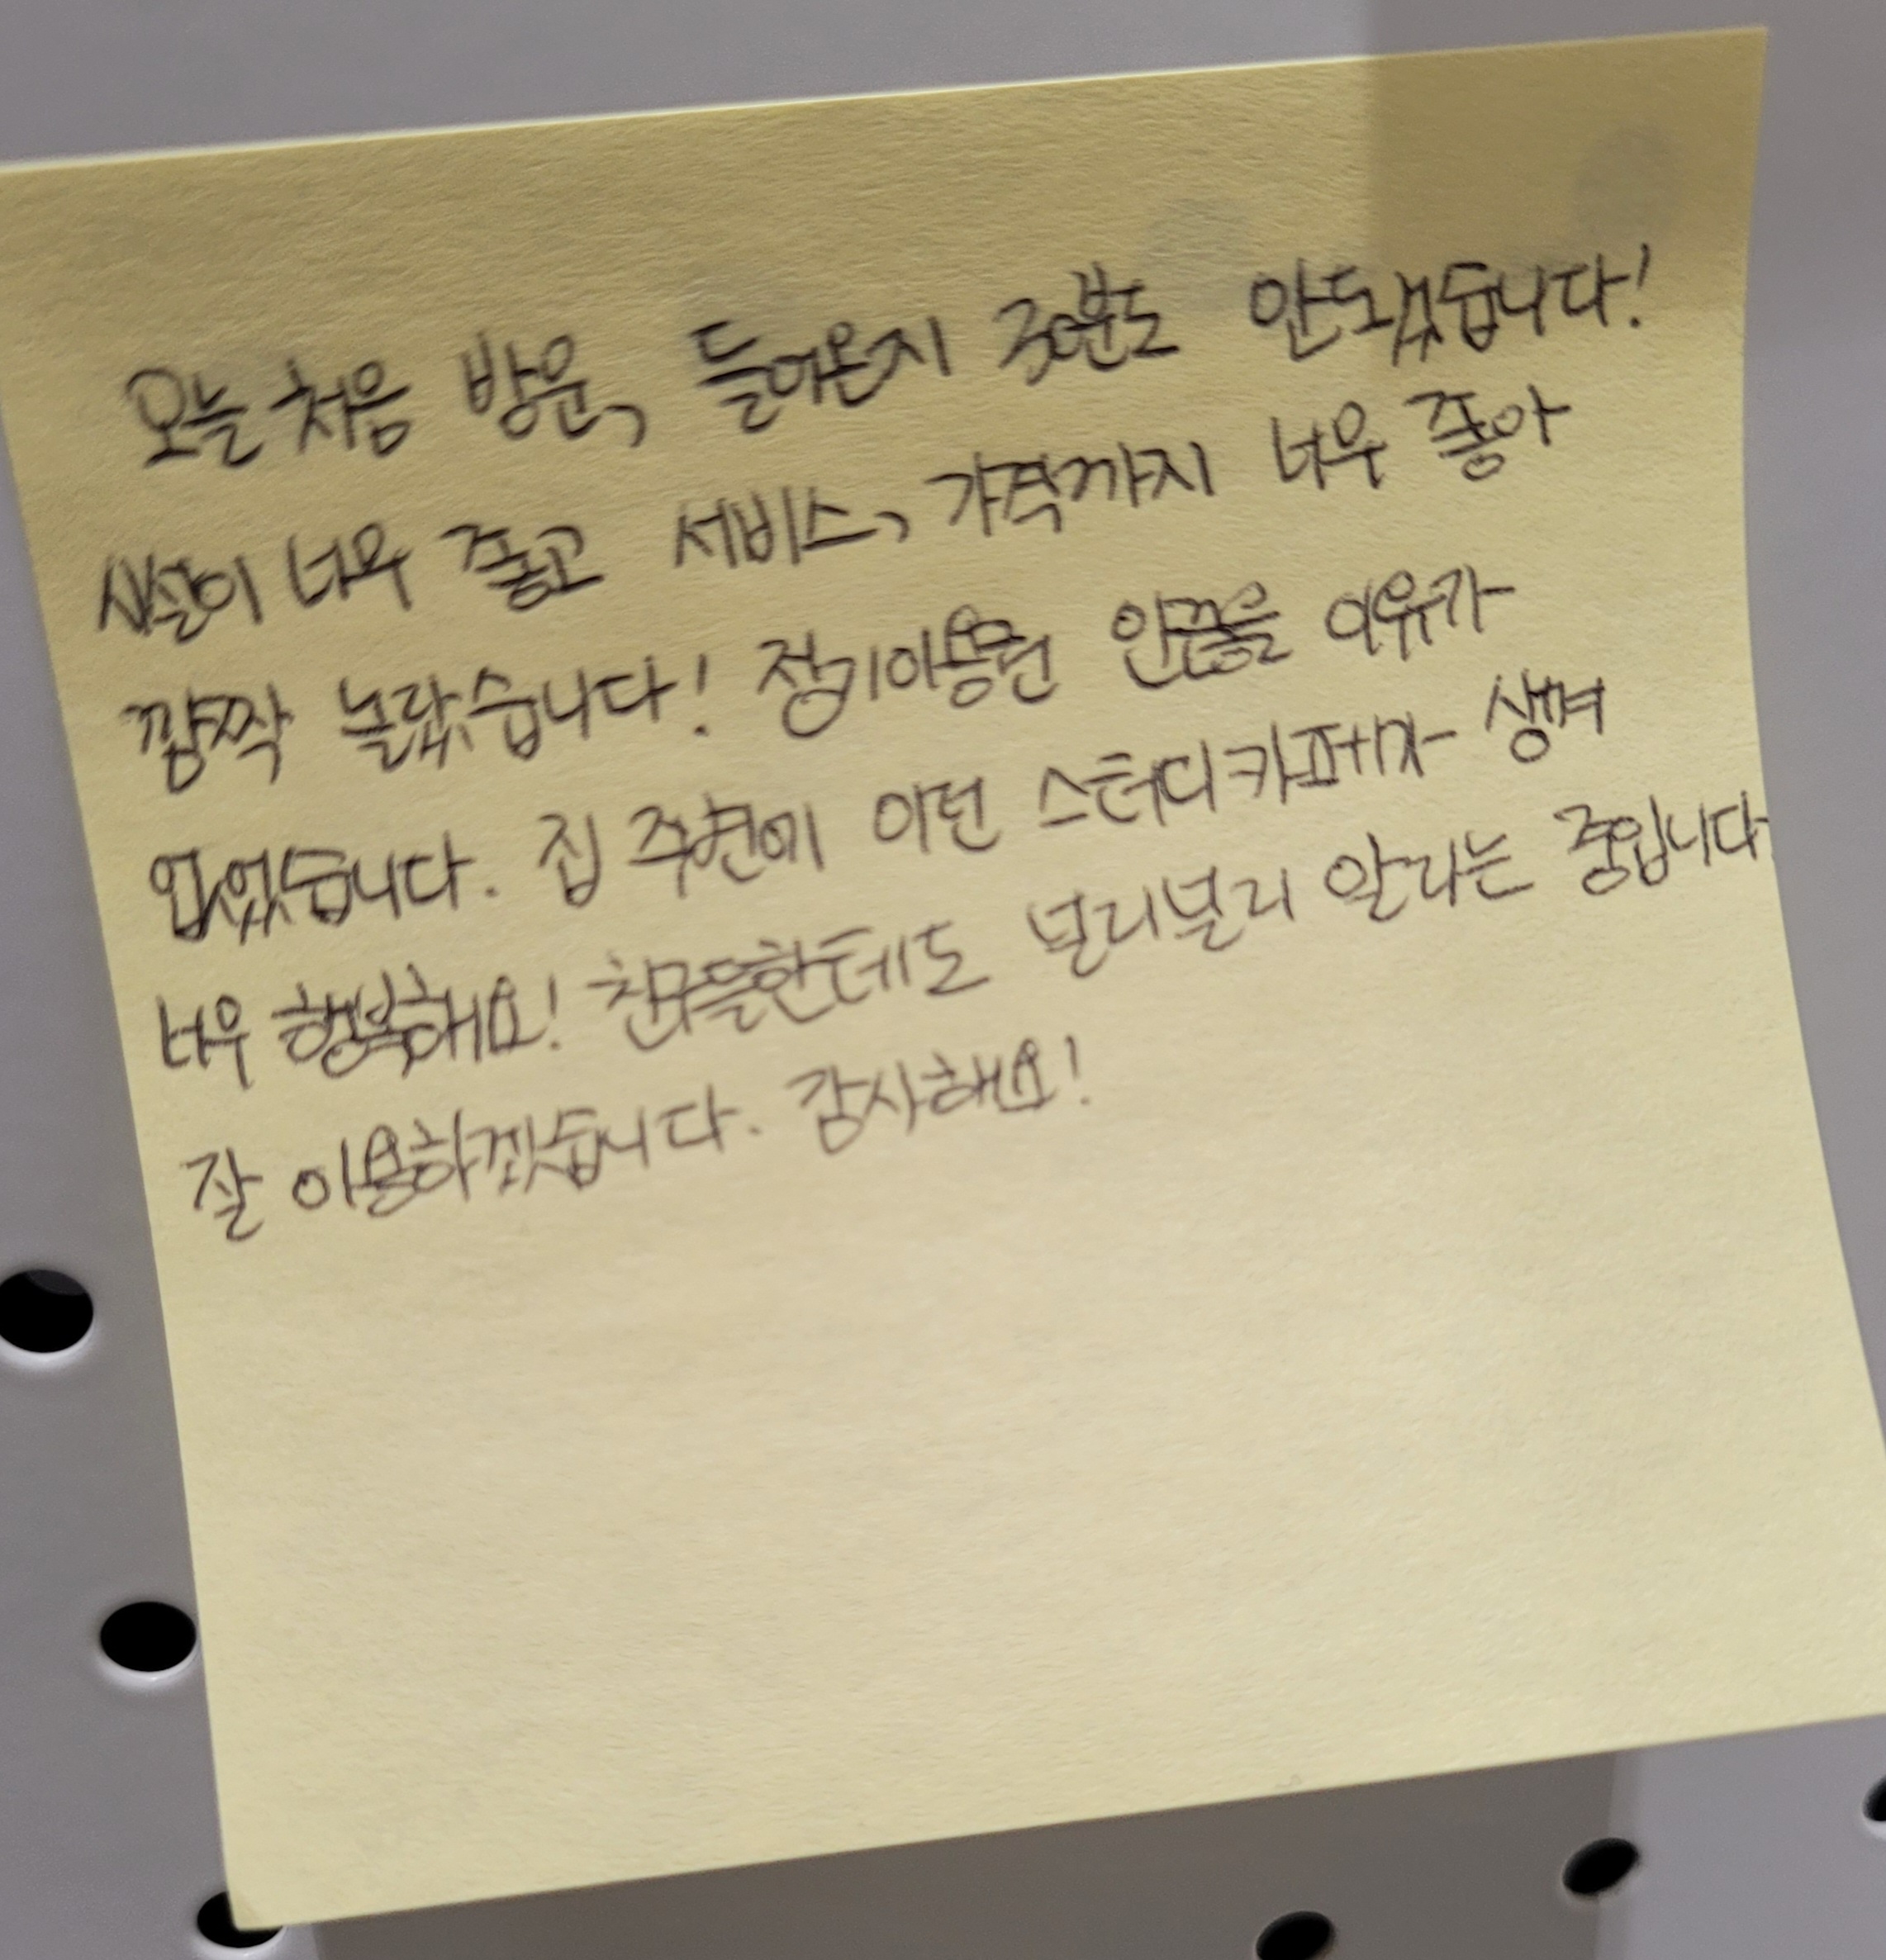 오늘 처음 방문, 들어온지 30분도 안되었습니다!
시설이 너무 좋고 서비스, 가격까지 너무 좋아
깜짝 놀랐습니다! 정기이용권 안끊을 이유가
없었습니다. 집 주변에 이런 스터디카페가 생겨
너무 행복해요! 친구들한테도 널리널리 알리는 중입니다
잘 이용하겠습니다. 감사해요!